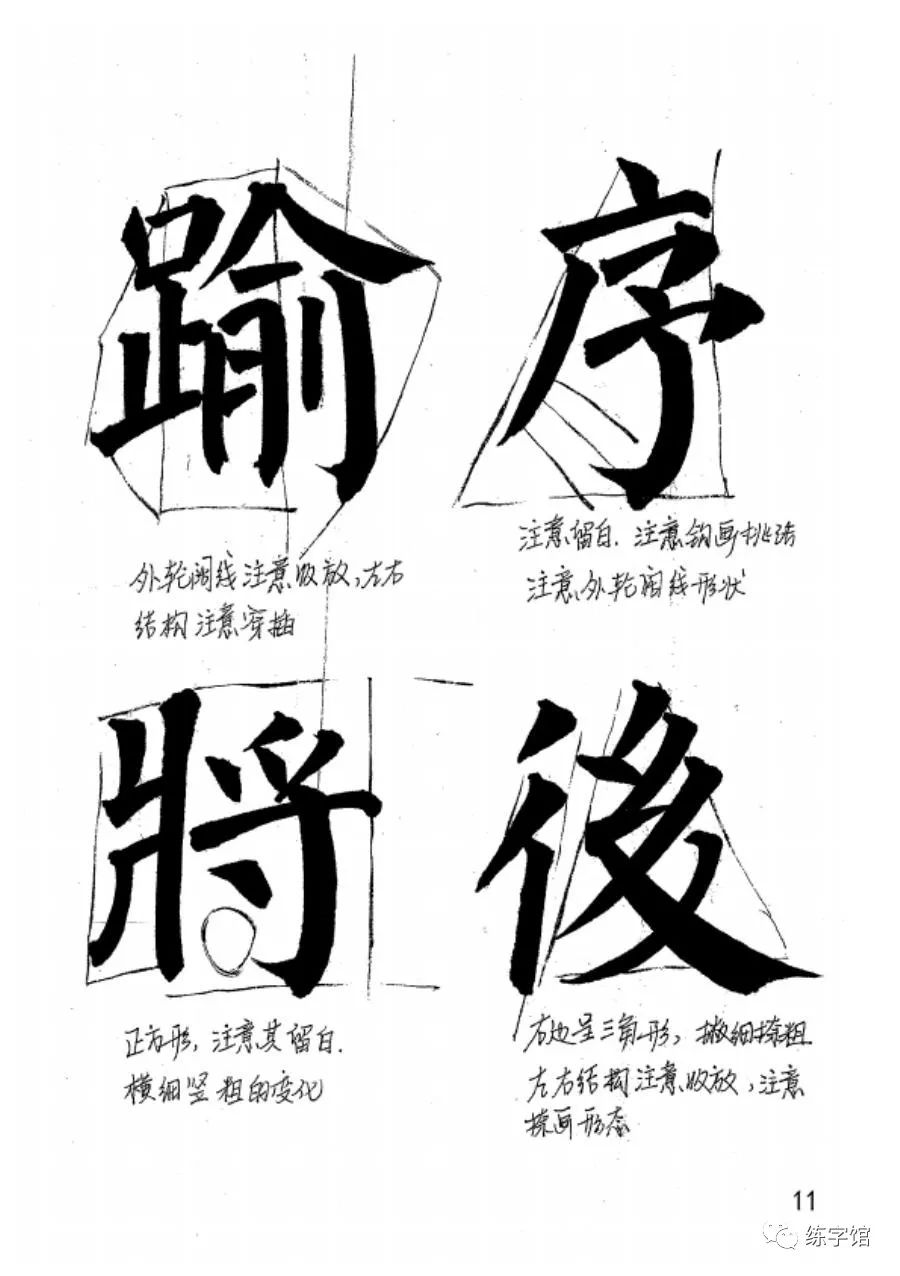 踰
序
外轮阔线注意收放,左右
结构注意穿插
注意留白.注意钩画挑踢
注意外轮阔线形状
將
後
正方形,注意其留白.
横细竖粗的变化
右边呈三角形,撇细捺粗
左右结构注意收放,注意
捺画形态
11
练字馆